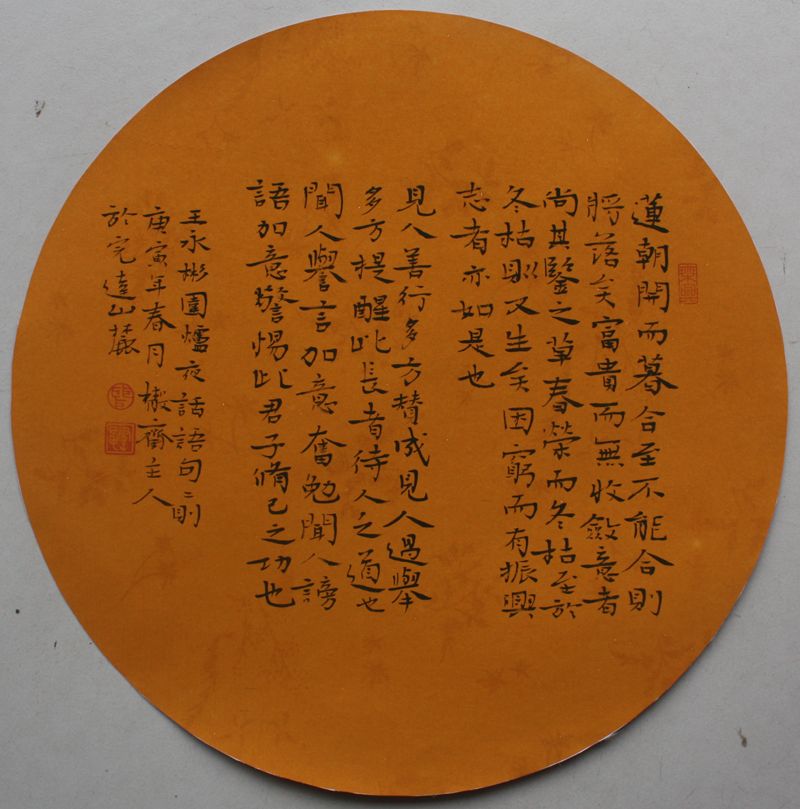 蓮朝開而暮合至不能合則
將落矣富貴而無收斂意者
尚其鑒之草春榮而冬枯至於
冬枯即又生矣困窮而有振興
志者亦如是也
見人善行多方贊成見人過舉
多方提醒此長者待人之道也
聞人譽言加意奮勉聞人謗
語加意警惕此君子脩己之功也
王永彬圍爐夜話語句二則
庚寅年春月齋主人
於完達山麓